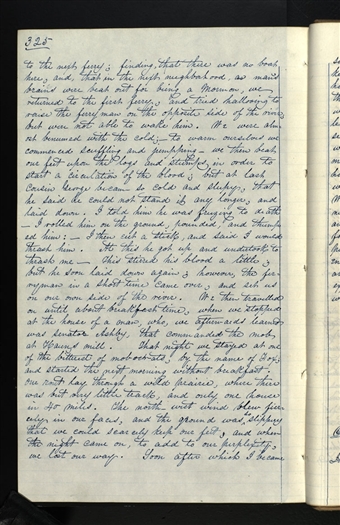 325
to the next ferry; finding, that there was no boat
here; and, that in the next neighborhood, a man's
brains were beat out for being a Mormon, we
returned to the first ferry, and tried hallooing to
raise the ferryman on the opposite side of the river
but were not able to wake him. We were alm
ost benumed with the cold, to warm ourselves we
commenced scuffling and jumping — we then beat
our feet upon the logs and stumps, in order to
start a circulation of the blood; but at last
Cousin George became so cold and sleepy, that
he said he could not stand it any longer, and
laid down. I told him he was freezing to death
— I rolled him on the ground, pounded, and thump
ed him; — I then cut a stick, and said I would
thrash him. At this he got up and undertook to
thrash me — this stired his blood a little;
but he soon laid down again; however, the fer-
ryman in a short time came over, and set us
on our own side of the river. We then travelled
on until about breakfast time, when we stopped
at the house of a man, who, we afterwards learned
was senator Ashby, that commanded the mob
at Hauns mill. That night we stayed at one
of the bitterest of mobocrats, by the name of Fox,
and started the next morning without breakfast.
Our rout lay through a wild prairie, where there
was but very little track, and only one house
in 40 miles. The north west wind blew fier-
cely in our faces, and the ground was slippery
that we could scarcely keep our feet, and when
the night came on, to add to our perplexity,
we lost our way. Soon after which I became